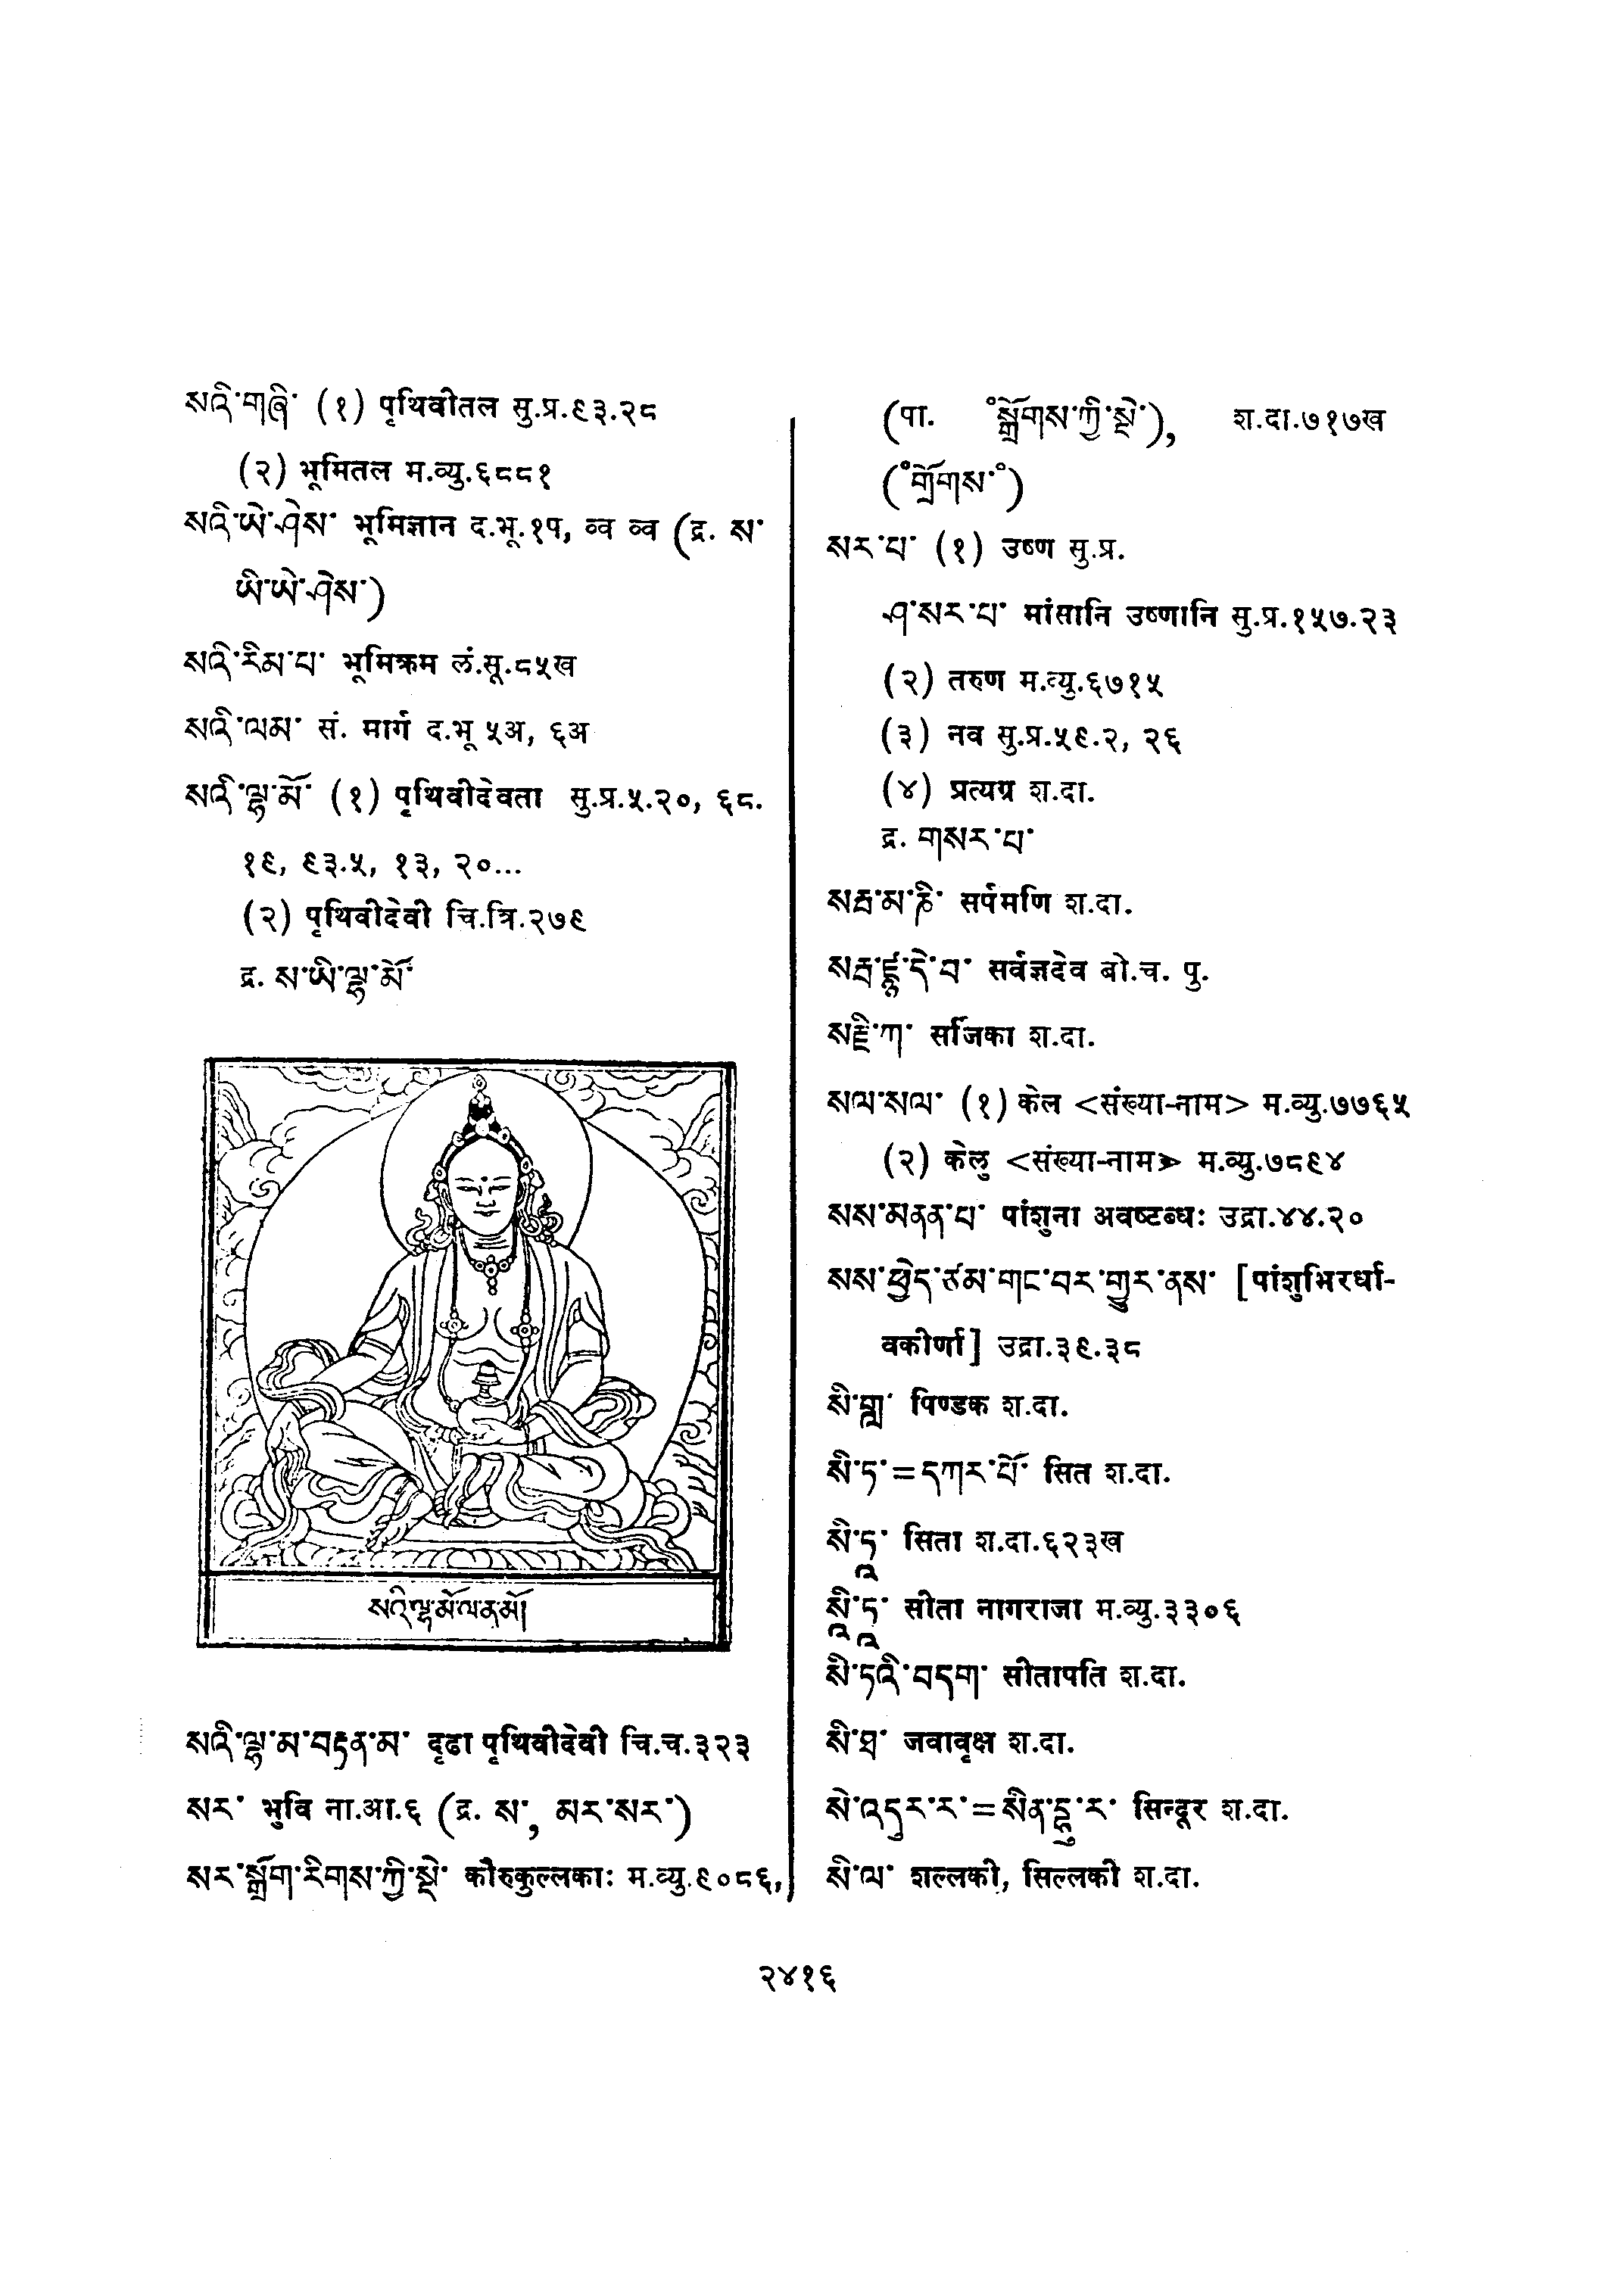 སའི་གཞི་ (१) पृथिवीतल सु.प्र.६३.२८
(२) भूमितल म.व्यु.६८८१
སའི་ཡེ་ཤེས་ भूमिज्ञान द.भू.१प, व्व व्व (द्र. ས་
ཡི་ཡེ་ཤེས་)
སའི་རིམ་པ་ भूमिक्रम लं.सू.८५ख
སའི་ལམ་ सं. मार्ग द.भू ५अ, ६अ
སའི་ལྷ་མོ་ (१) पृथिवीदेवता सु.प्र.५.२०, ६८.
१९, ९३.५, १३, २०...
(२) पृथिवीदेवी चि.त्रि.२७९
द्र. ས་ཡི་ལྷ་མོ་
སའི་ལྷ་མོ་ལ་ན་མོ།
སའི་ལྷ་མ་བརྟན་མ་ दृढा पृथिवीदेवी चि.च.३२३
སར་ भुवि ना.आ.६ (द्र. ས་, མར་སར་)
སར་སྒྲོག་རིགས་ཀྱི་སྡེ་ कौरुकुल्लकाः म.व्यु.९०८६,
(पा. ॰སྒྲོགས་ཀྱི་སྡེ་), श.दा.७१७ख
(॰གྲོགས་॰)
སར་པ་ (१) उष्ण सु.प्र.
ཤ་སར་པ་ मांसानि उष्णानि सु.प्र.१५७.२३
(२) तरुण म.व्यु.६७१५
(३) नव सु.प्र.५९.२, २६
(४) प्रत्यग्र श.दा.
द्र. གསར་པ་
སརྦ་མ་ཎི་ सर्पमणि श.दा.
སརྦ་ཛྙ་དེ་བ་ सर्वज्ञदेव बो.च. पु.
སརྫི་ཀ་ सर्जिका श.दा.
སལ་སལ་ (१) केल <संख्या-नाम> म.व्यु.७७६५
(२) केलु <संख्या-नाम> म.व्यु.७८९४
སས་མནན་པ་ पांशुना अवष्टब्धः उद्रा.४४.२०
སས་ཕྱེད་ཙམ་གང་བར་གྱུར་ནས་ [पांशुभिरर्धा-
वकीर्णा] उद्रा.३९.३८
སི་གླ་ पिण्डक श.दा.
སི་ཏ་=དཀར་པོ་ सित श.दा.
སི་ཏཱ་ सिता श.दा.६२३ख
སཱི་ཏཱ་ सीता नागराजा म.व्यु.३३०६
སི་ཏའི་བདག་ सीतापति श.दा.
སི་ཐ་ जवावृक्ष श.दा.
སི་འདུར་ར་=སིན་དྷུ་ར་ सिन्दूर श.दा.
སི་ལ་ शल्लकी, सिल्लकी श.दा.
२४१६